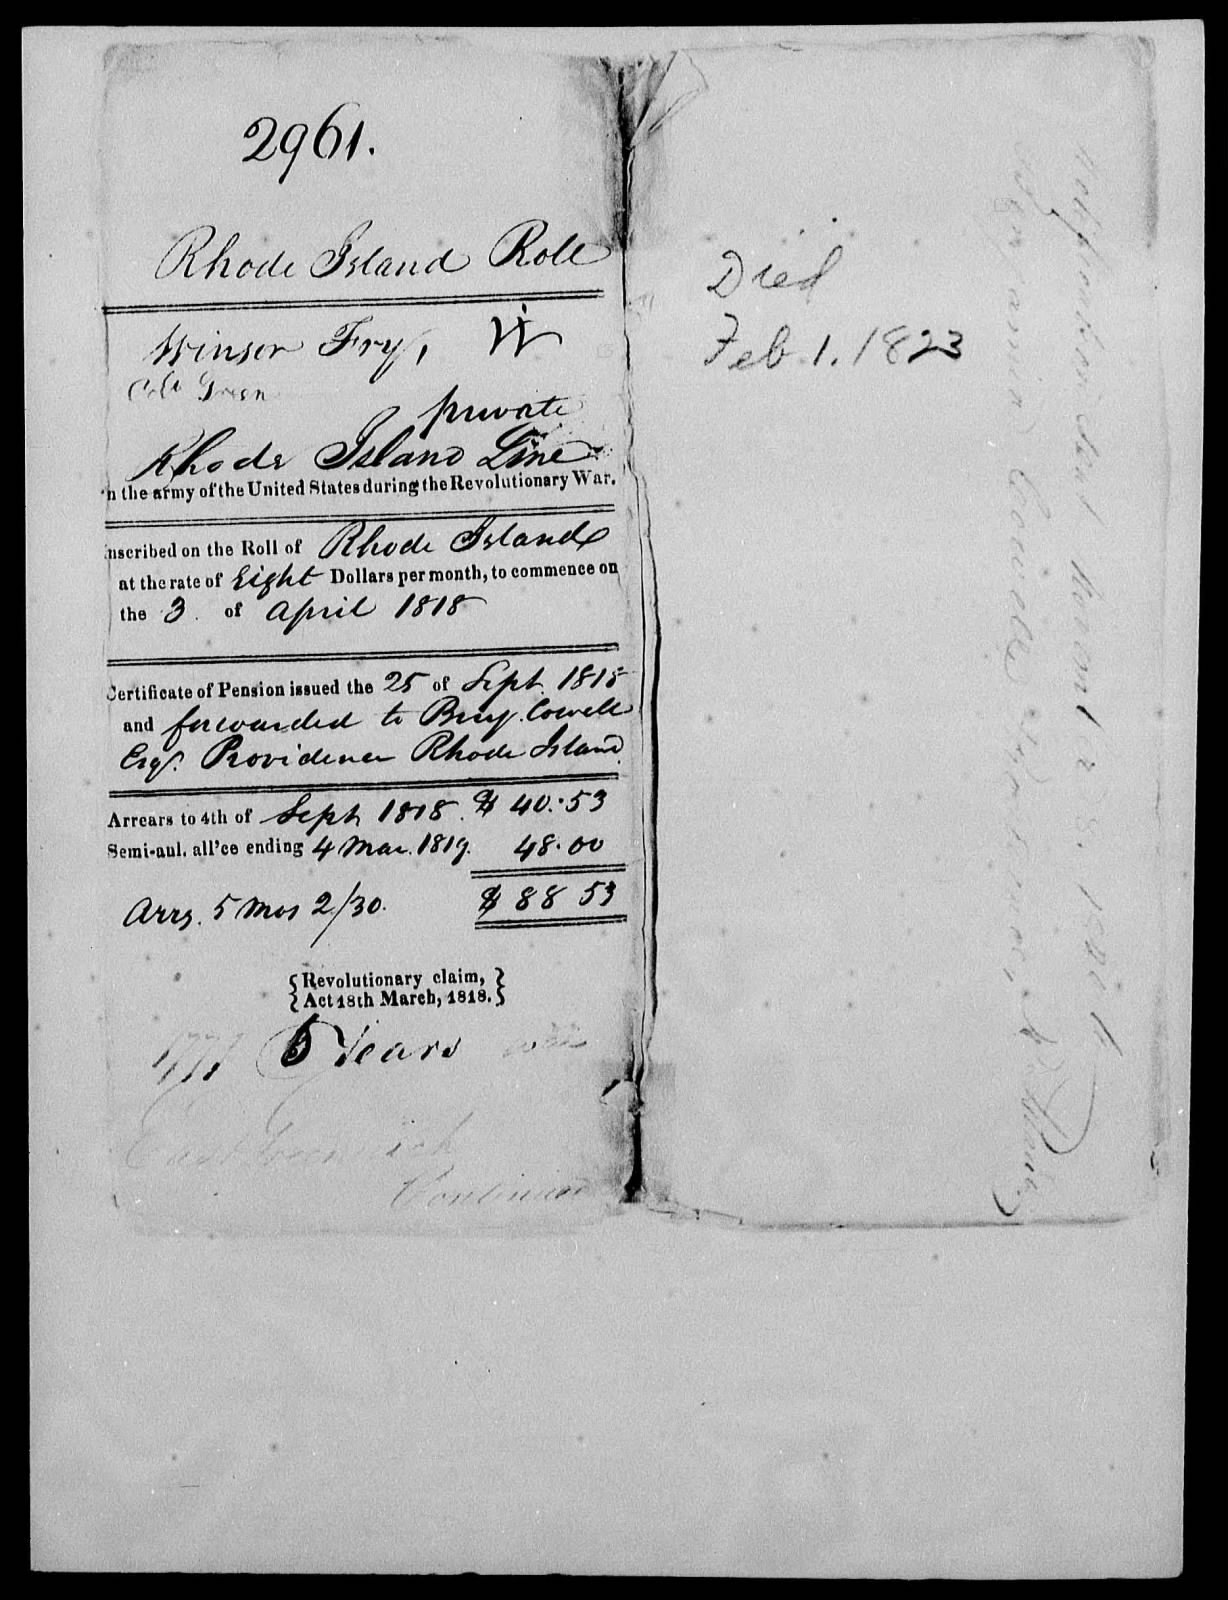 2961.
Rhode Island Roll
Winsor Fry, W
Col. Green
private
Rhode Island Line
in the army of the United States during the Revolutionary War.
Inscribed on the Roll of Rhode Island
at the rate of Eight Dollars per month, to commence on
the 3 of April 1818
Certificate of Pension issued the 25 of Sept. 1818
and forwarded to Benj. Cowell
Esq. Providence Rhode Island
Arrears to 4th of Sept 1818. $ 40.53
Semi-anl. all'ce ending 4 Mar. 1819. 48.00
Arrs. 5 Mos 2/30. $ 88 53
{Revolutionary claim,}
{Act 18th March, 1818.}
1777 5 Years
East Greenwich
Continued
Died
Feb. 1. 1823
Notification sent
Benjamin Cowell